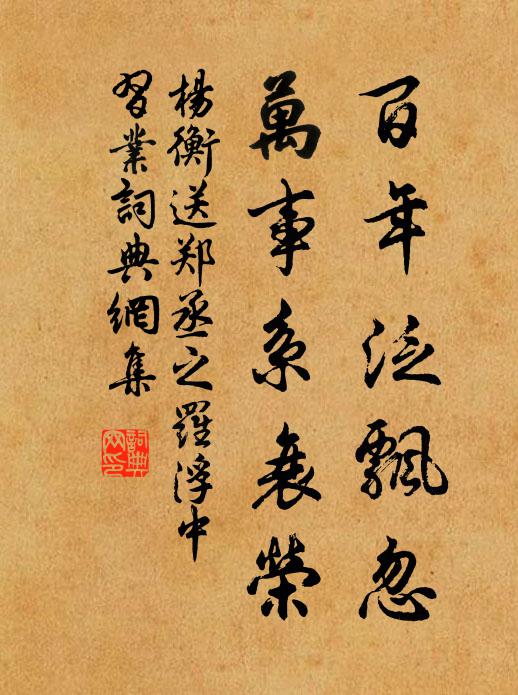 百年泛飘忽
萬事系衰榮
楊衡送郑丞之羅浮中
習業詞典網集
詞典
网印